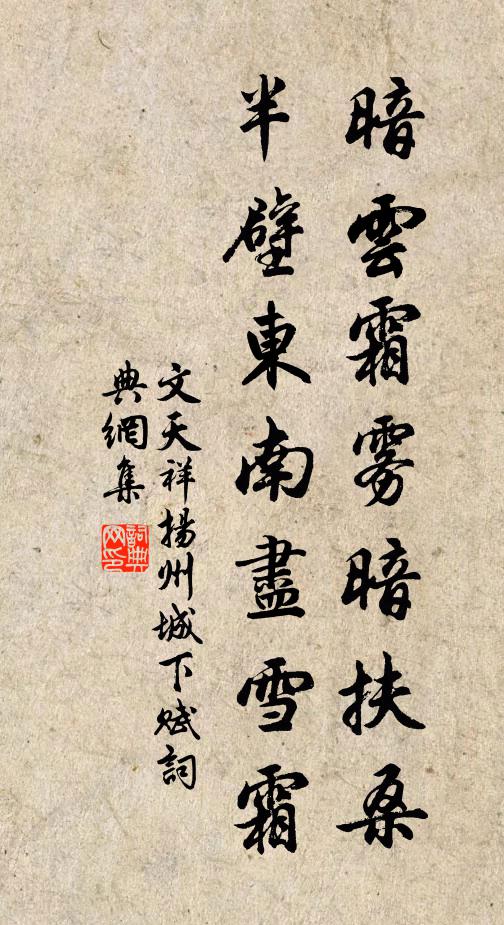 暗雲霜雾暗扶桑
半壁東南盡雪霜
文天祥揚州城下赋詞
典網集
詞典网印